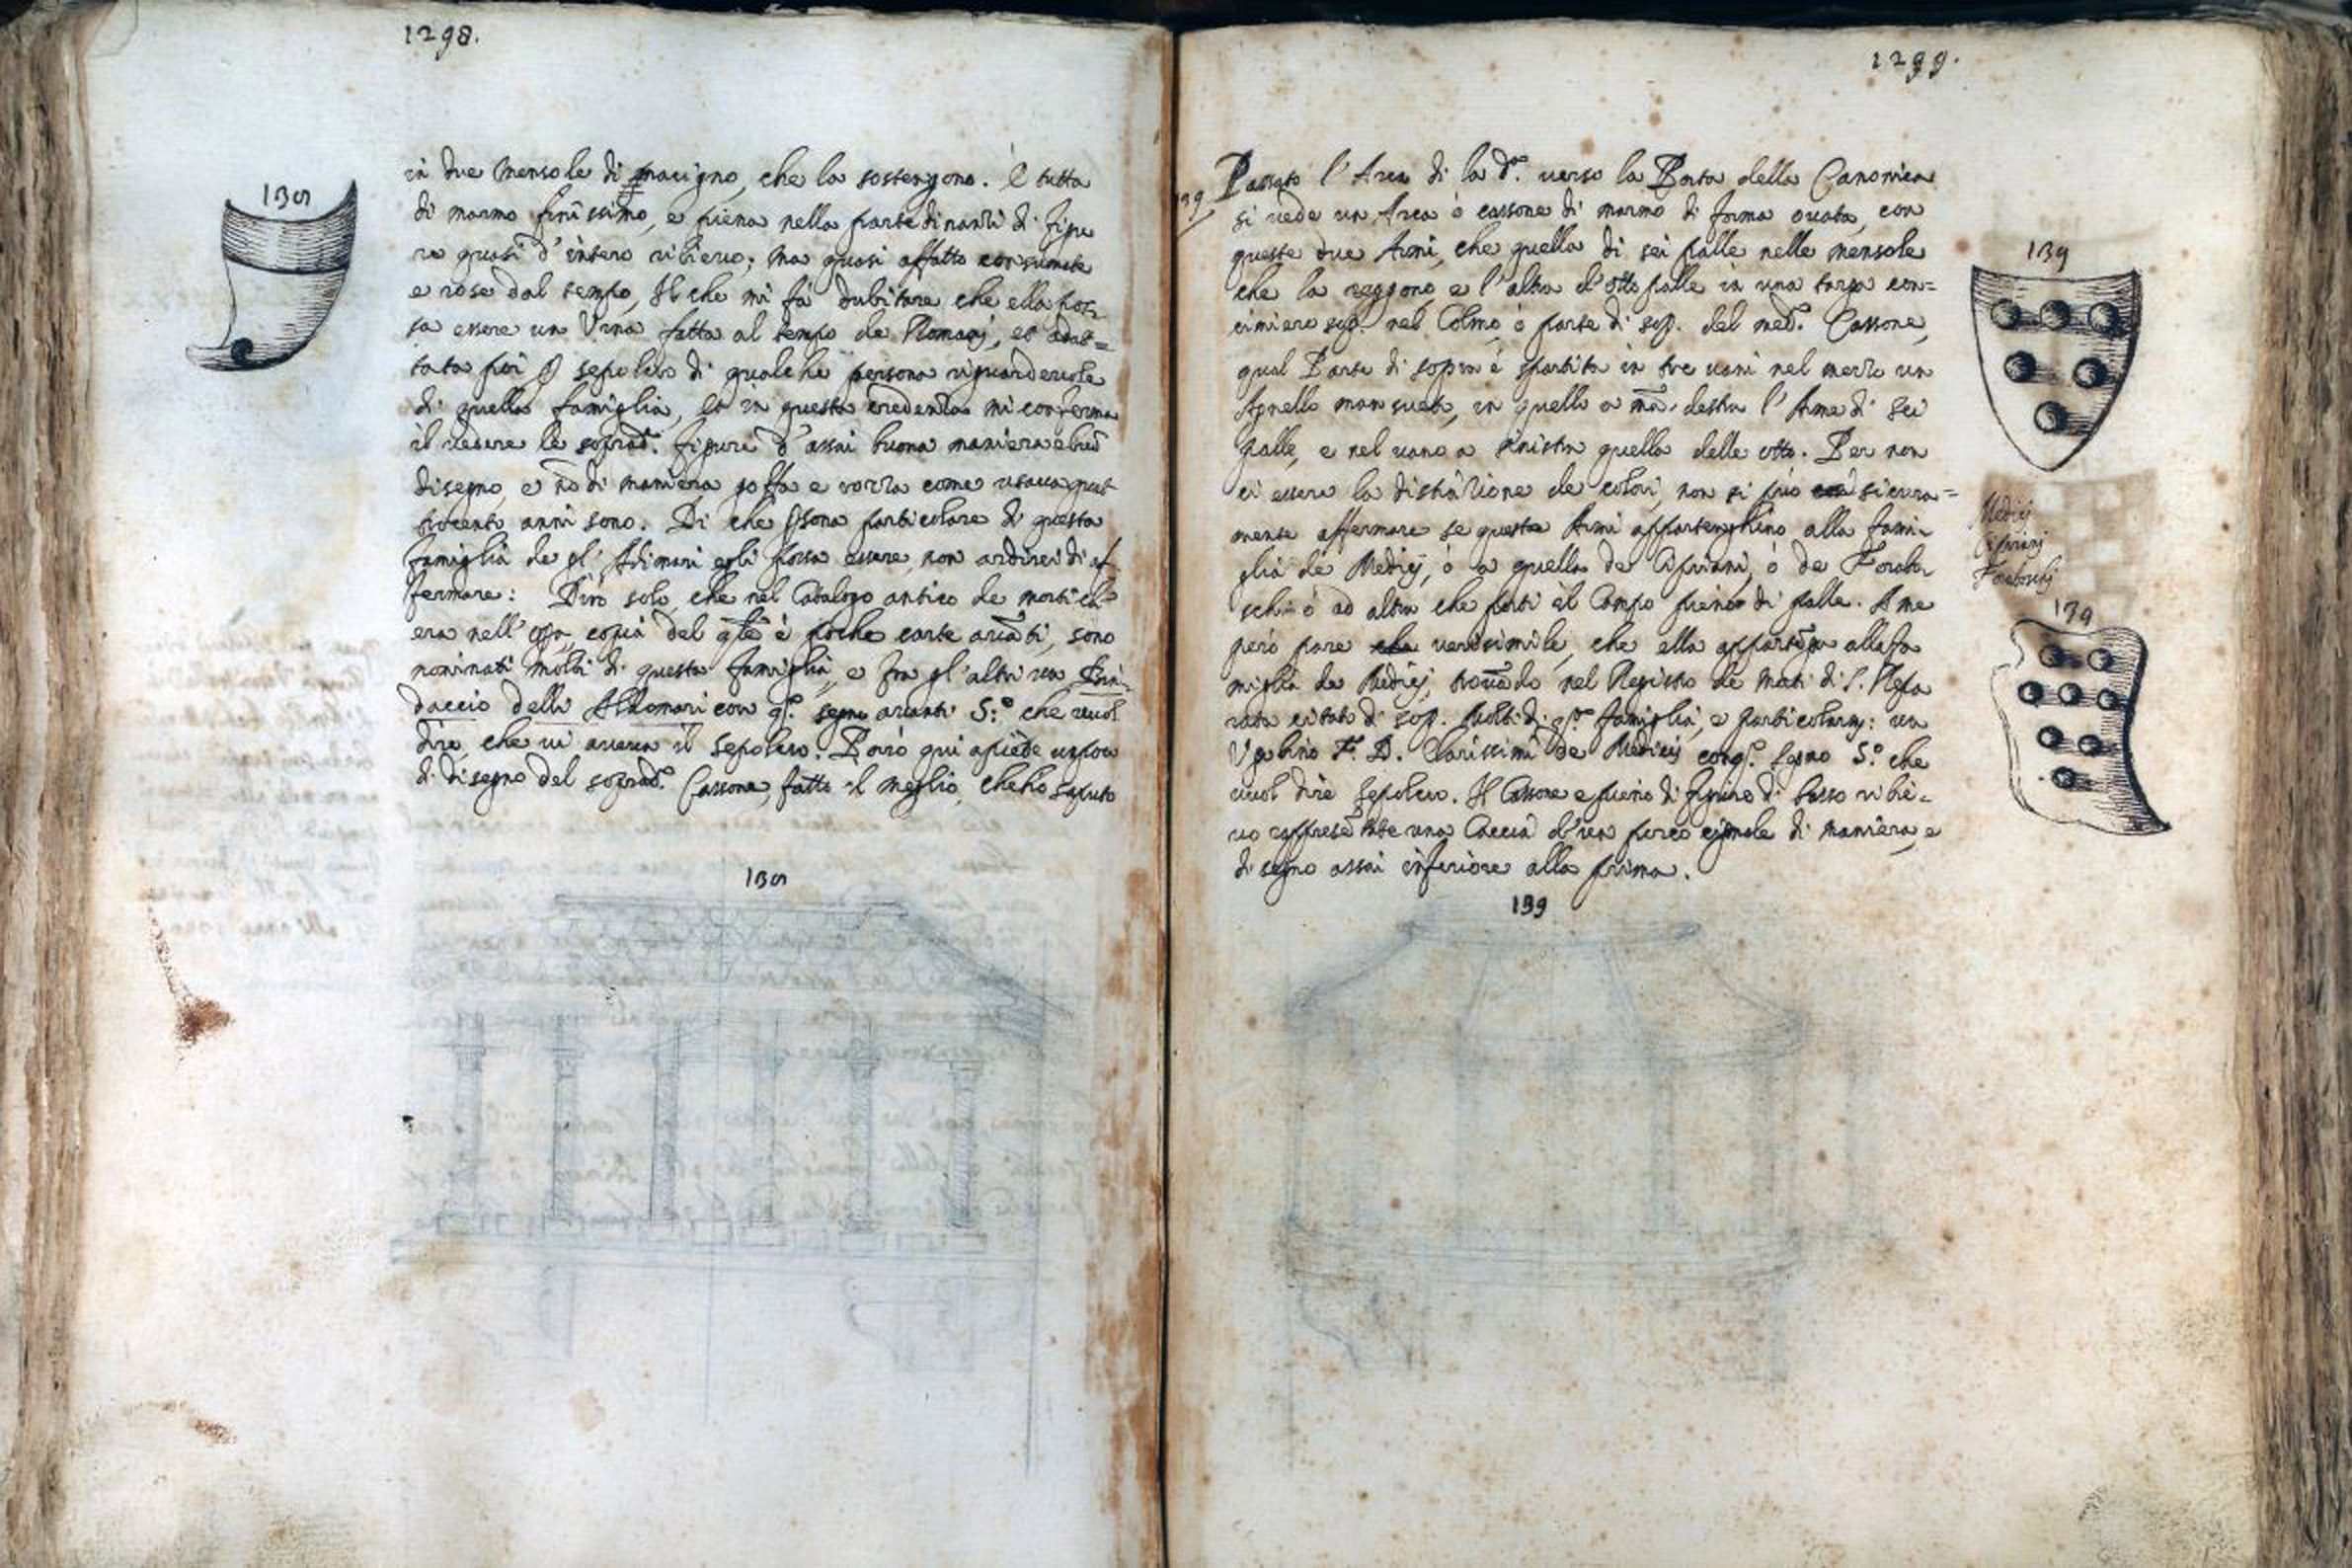 1298.
138
in due mensole di macigno, che la sostengono. È tutta
di marmo finissimo, e piena nella parte dinanzi di figu
re quasi d'intero rilievo; ma quasi affatto consumate
e rose dal tempo, Il che mi fà dubitare che ella pos-
sa essere un Urna fatta al tempo de Romani, et adat=
tata poi sepolcro di qualche persona riguardevole
di quella famiglia, et in questa credenza mi conferma
il vedere le soprad.e figure d'assai buona maniera e
disegno, e nō di maniera goffa e rozza come usava
trecento anni sono. Di che particolare di questa
famiglia de gl' Adimari egli possa essere, non ardirei di af
fermare: Dirò solo, che nel Catalogo antico de morti ch'
era nell' copia del è poche carte avāti, sono
nominati molti di questa famiglia, e fra gl'altri un Bin
daccio delli Aldomari con q.o segno avanti S:o che vuol
dire che vi aveva il sepolcro. Porrò qui apiede un poca
di disegno del soprad.o Cassone, fatto il meglio, che hò saputo
138
1299.
139.
Passato l'Arca di la d.a verso la Porta della Canonica
si vede un Arca ò cassone di marmo di forma ovata, con
queste due Armi, che quella di sei palle nelle mensole
che la reggono, e l'altra d'otto palle in una targa con=
cimiero sop.a nel Colmo, ò parte di sop.a del med.o Cassone,
qual Parte di sopra è spartita in tre vani nel mezzo un
Agnello mansueto, in quello a mā destra l'Arme di sei
palle, e nel vano a sinistra quella delle otto. Per non
ci essere la distinzione de colori, non si può sicura=
mente affermare se queste Armi appartenghino alla fami-
glia de Medici, ò a quella de Cipriani, ò de Forabo-
schi ò ad altra che porti il Campo pieno di palle. A me
però pare verisimile, che ella appartēga alla fa
miglia de Medici, trovādo nel Registro de Morti di S. Repa
rata citato di sop.a molti di q.a famiglia, e particolarm: un
Ugolino F. D. Clarissimi de Medicis con q.o segno S.o che
vuol dire sepolcro. Il Cassone è pieno di figure di basso rilie-
vo rappresētāte una Caccia d'un porco cignale di maniera, e
disegno assai inferiore alla prima.
139
139
Medici
Cipriani
Foraboschi
139